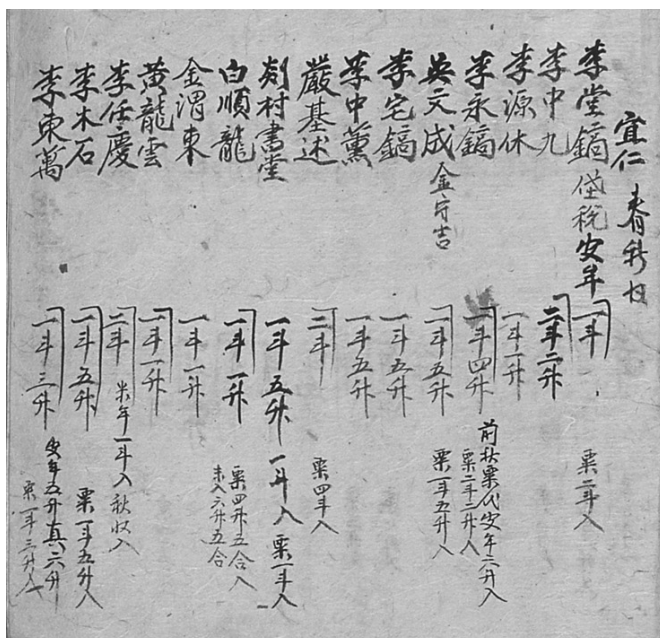 宜仁 春秋收
李堂鎬 垈稅安年 一斗 粟二斗入
李中九 二斗二升
李源休 一斗一升
李永鎬 一斗四升 前秋粟代安年二升入 粟二斗二升入
吳文成 金守吉 一斗五升 粟一斗五升入
李宅鎬 一斗五升
李中薰 一斗五升
嚴基述 二斗 粟四斗入
剡村書堂 一斗五升 一斗入 粟一斗入
白順龍 一斗一升 粟四升五合入 未入六升五合
金渭東 一斗一升
黃龍雲 一斗一升
李任慶 二斗 米年一斗入 秋收入
李木石 一斗五升 粟一斗五升入
李東萬 一斗三升 安年五升真六升 粟一斗三升入